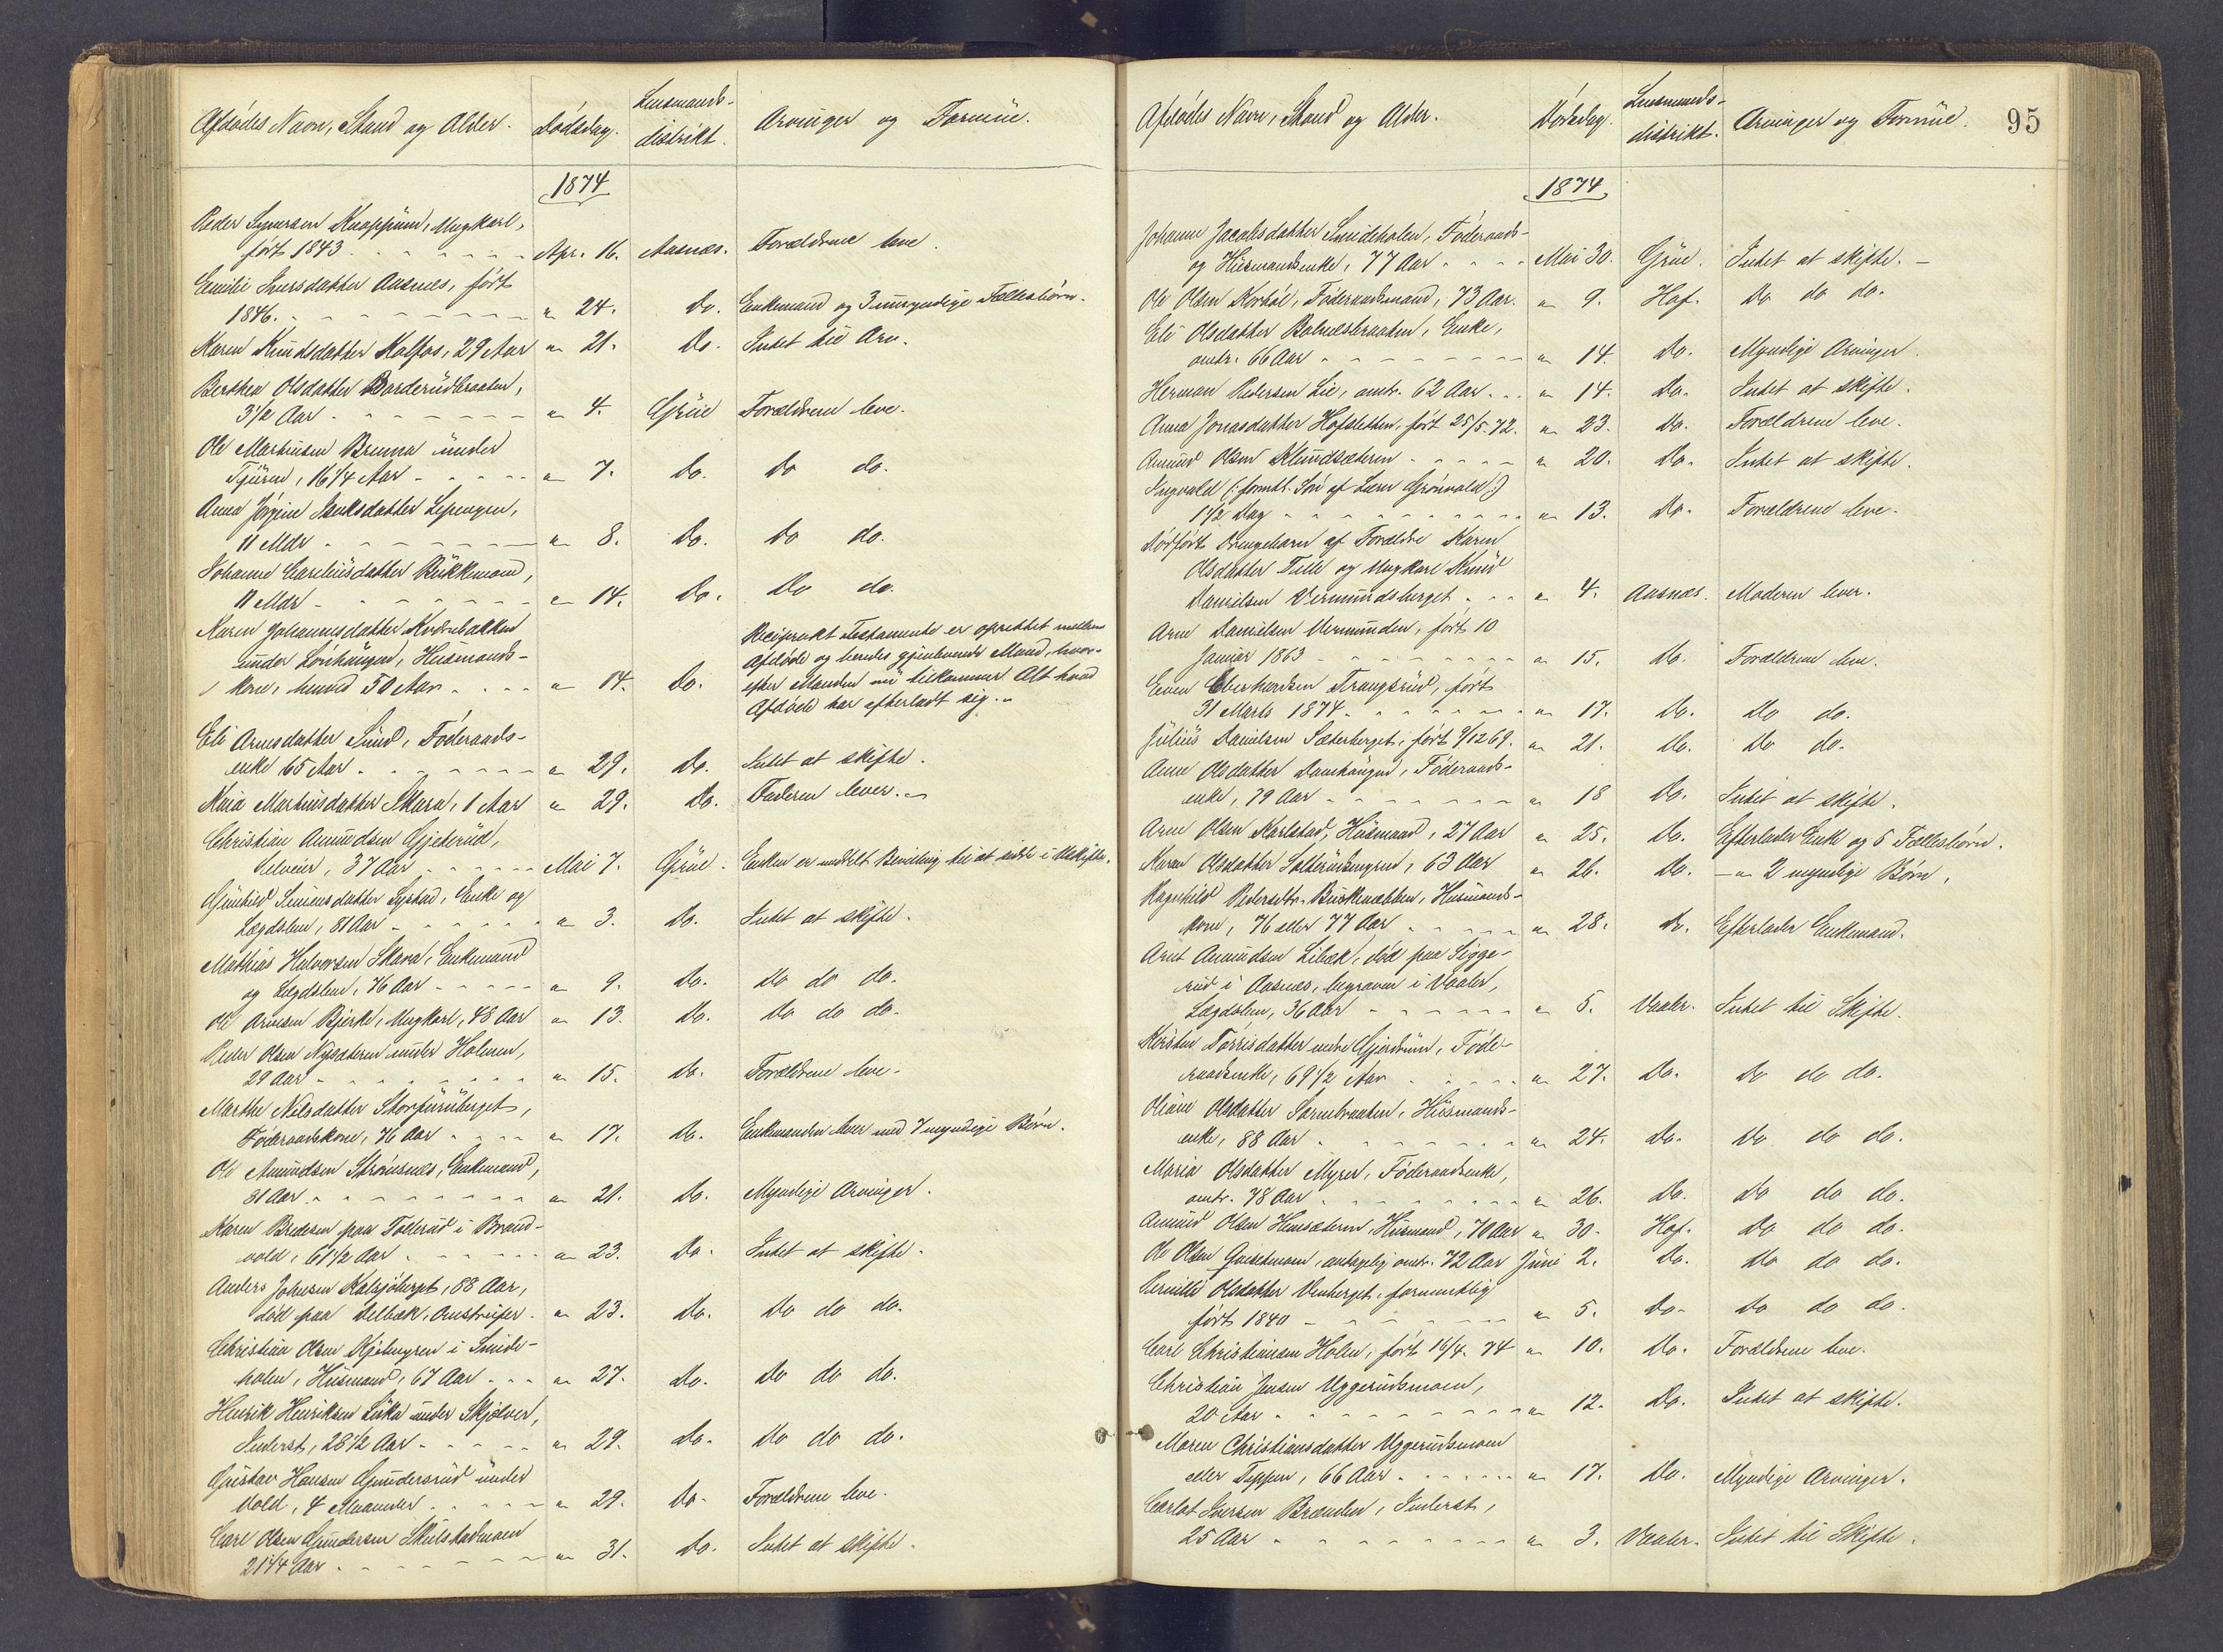 Afdødes Navn, Stand og Alder. Dødsdag. Lensmands-
distrikt. Arvinger og Formüe.
1874
Peder Syversen Knappum, Ungkarl,
født 1843 - - - - - Apr. 16. Aasnæs. Forældrene leve.
Emilie Iversdatter Aasnæs, født
1846. - - - - - " 24. Do. Enkemand og 3 umyndige Fællesbørn.
Karen Knudsdatter Kalfos, 29 Aar " 21. Do. Intet til Arv.
Berthea Olsdatter Borderüdbraaten,
3 1/2 Aar - - - - - " 4. Grüe Forældrene leve.
Ole Martinsen Brenna ünder
Tjüren, 16 1/4 Aar - - - - - " 7. Do. Do do.
Anna Jørgine
11 Mdr - - - - - " 8. Do. Do do.
Johanne Careliüsdatter
11 Mdr - - - - - " 14. Do. Do do.
Karen Johannesdatter
ünder Lønhaügen, Husmands-
kone, henved 50 Aar - - - - " 14. Do. Reciprokt Testamente er oprettet mellem
Afdøde og hendes gjenlevende Mand, hvor-
efter Manden nü tilkommer Alt hvad
Afdøde har efterladt sig. "
Eli Arnesdatter Sünd, Føderaads-
enke 65 Aar - - - - - " 29. Do. Intet at skifte.
Maia Martinsdatter Skara, 1 Aar " 29. Do. Faderen lever. "
Christian Amündsen Gjeterüd,
Selveier, 37 Aar - - - - - Mai 7. Grüe. Enken er meddelt Bevilling til at sidde i Uskifte.
Günhild Simensdatter Lystad, Enke og
Lægdslem, 81 Aar - - - - - " 3. Do. Intet at skifte.
Mathias Halvorsen Skara, Enkemand
og Lægdslem, 76 Aar - - - - - " 9. Do. Do do do.
Ole Arnesen Bjerke, Ungkarl, 48 Aar " 13. Do. Do do do.
Peder Olsen Nysæteren ünder Holmen,
29 Aar - - - - - " 15. Do. Forældrene leve.
Marthe Nilsdatter Storfürüberget,
Føderaadskone, 76 Aar - - - - " 17. Do. Enkemanden lever med 7 myndige Børn.
Ole Amündsen Strømsnæs, Enkemand,
81 Aar - - - - - " 21. Do. Myndige Arvinger.
Karen Bredesen paa Tollerüd i Brand-
vold, 61 1/2 Aar - - - - - " 23. Do. Intet at skifte.
Anders Johnsen Kalsjøberget, 88 Aar,
død paa Velbæk, " 23. Do. Do do do.
Christian Olsen i Smide-
holen, Hüsmand, 67 Aar - - - " 27. Do. Do do do.
Henrik Henriksen ünder Skjølver,
Inderst, 28 1/2 Aar - - - - - " 29. Do. Do do do.
Güstav Hansen Gündersrüd ünder
Vold, 4 Maaneder - - - - - " 29. Do. Forældrene leve.
Carl Olsen Gündersen Skülstadmoen
21 1/4 Aar - - - - - " 31. Do. Intet at skifte.
Afdødes Navn, Stand og Alder. Dødsdag. Lensmands-
distrikt. Arvinger og Formüe. 95
1874
Johanne Jacobsdatter Smideholen, Føderaads-
og Hüsmandsenke, 77 Aar - - - - Mai 30. Grüe. Intet at skifte. -
Ole Olsen Korbøl, Føderaadsmand, 73 Aar. " 9. Hof. Do do do.
Eli Olsdatter Bolnesbraaten, Enke,
omtr. 66 Aar - - - - - " 14. Do. Myndige Arvinger.
Herman Pedersen Lie, omtr. 62 Aar - - " 14. Do. Intet at skifte.
Anna Jonasdatter Hofsletten, født 25/5. 72. " 23. Do. Forældrene leve.
Amünd Olsen Klündsæteren - - - - - " 20. Do. Intet at skifte.
Ingvald (: formtl. Søn af Lærer Grønvold :)
1 1/2 Dag - - - - - " 13. Do. Forældrene leve.
Dødfødt Drengebarn af Forældre Karen
Olsdatter og Ungkarl Knüd
Danielsen Vermündsberget - - - " 4. Aasnæs. Moderen lever.
Arne Danielsen Vermünden, født 10
Janüar 1863 - - - - - " 15. Do. Forældrene leve.
Even Eberhardsen Strangsrüd, født
31 Marts 1874 - - - - - " 17. Do. Do do.
Jüliüs Danielsen Sæterberget, født 9/12 69. " 21. Do. Do do.
Anne Olsdatter Damhaügen, Føderaads-
enke, 79 Aar - - - - - " 18 Do. Intet at skifte.
Arne Olsen Karlstad, Hüsmand, 27 Aar " 25. Do. Efterlader Enke og 5 Fællesbørn.
Karen Olsdatter 63 Aar " 26. Do. - " 2 myndige Børn.
Ragnhild Pedersdtr. Buskenæbben, Husmands-
kone, 76 eller 77 Aar - - - - - " 28. Do. Efterlader Enkemand.
Arnt Amündsen Libæk, død paa Sigge-
rüd i Aasnæs, begraven i Vaaler,
Lægdslem, 36 Aar - - - - - " 5. Vaaler. Intet til Skifte.
Kirsten Torrisdatter nedre Gjerdrüm, Føde-
raadsenke, 69 1/2 Aar - - - - - " 27. Do. Do do do.
Oliane Olsdatter Sornebraaten, Hüsmands-
enke, 88 Aar - - - - - " 24. Do. Do do do.
Maria Olsdatter Myrer, Føderaadsenke,
omtr. 78 Aar - - - - - " 26. Do. Do do do.
Amünd Olsen Hensæteren, Hüsmand, 70 Aar " 30. Hof. Do do do.
Ole Olsen antagelig omtr. 72 Aar Jüni 2. Do. Do do do.
Pernille Olsdatter Venberget, formentlig
født 1840 - - - - - " 5. Do. Do do do.
Carl Christiansen Holen, født 16/4. 74 " 10. Do. Forældrene leve.
Christian Jensen Uggerüdsmoen,
20 Aar - - - - - " 12. Do. Intet at skifte.
Maren Christiansdatter Uggerüdsmoen
eller Teppen, 66 Aar - - - - - " 17. Do. Myndige Arvinger.
Carlot Iversen Brænden, Inderst,
25 Aar - - - - - " 3. Vaaler. Intet til Skifte.